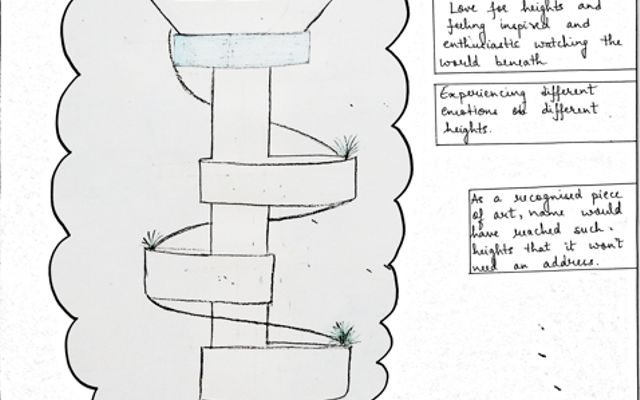 Love for heights and
feeling inspired and
enthusiastic watching the
world beneath
Experiencing different
emotions on different
heights.
As a recognised piece
of art, name would
have reached such.
heights that it won't
need an address.